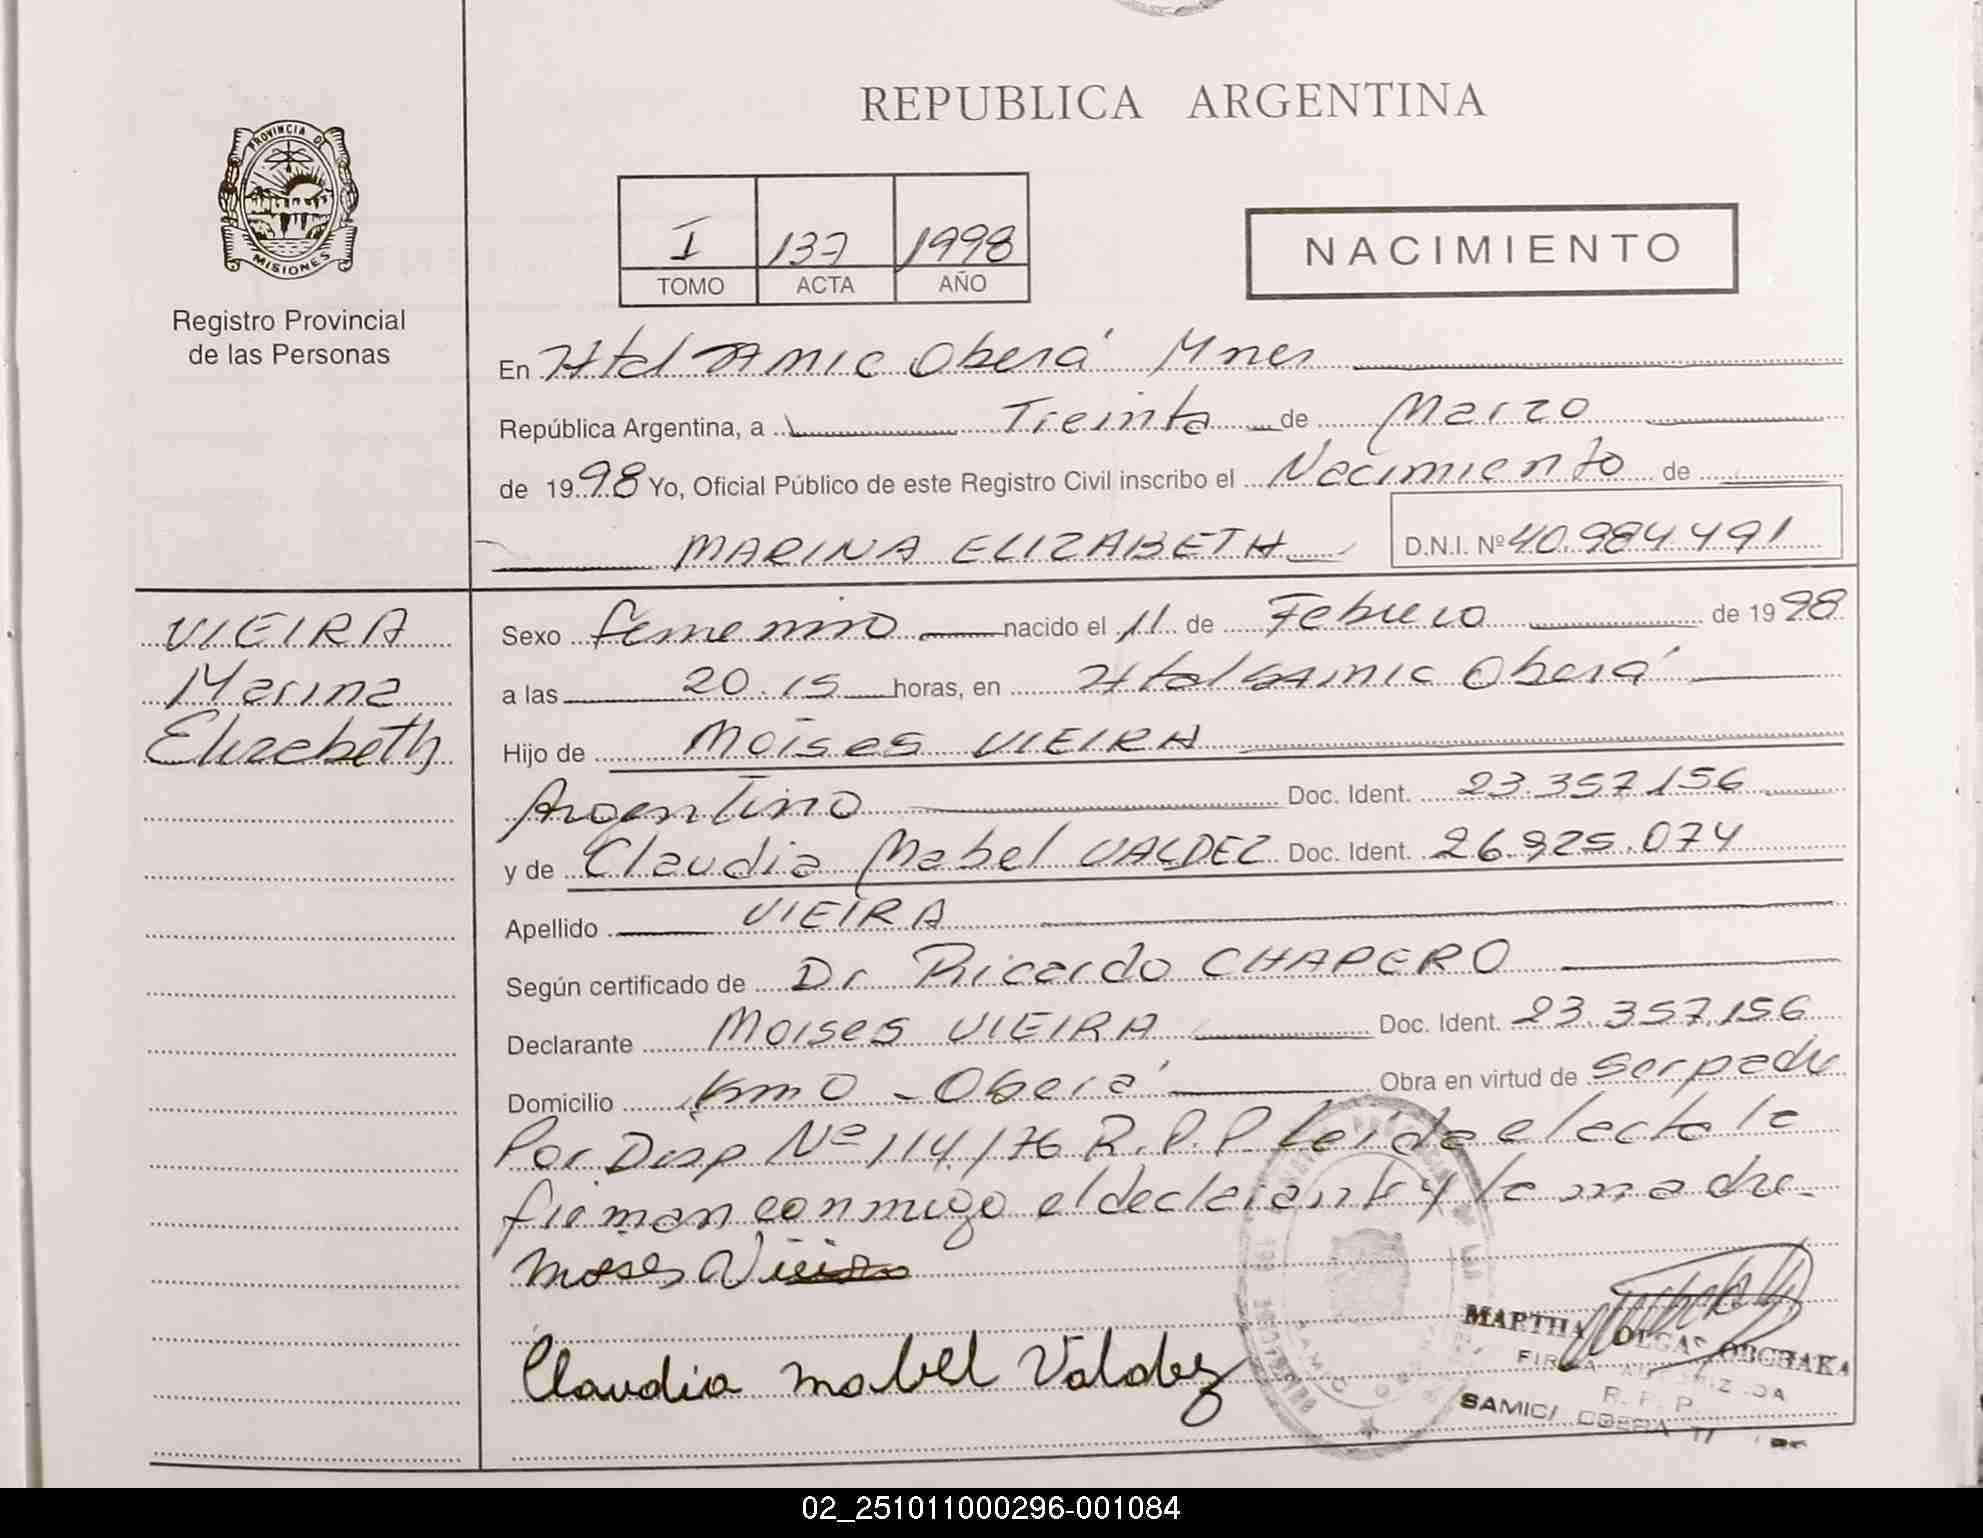 REPUBLICA ARGENTINA
PROVINCIA DE
MISIONES
Registro Provincial
de las Personas
I 137 1998
TOMO ACTA AÑO
NACIMIENTO
En Htal SAMIC Oberá Mnes
República Argentina, a Treinta de Marzo
de 1998 Yo, Oficial Público de este Registro Civil inscribo el Nacimiento de
MARINA ELIZABETH D.N.I. Nº 40.984.491
VIEIRA
Marina
Elizabeth
Sexo femenino nacido el 11 de Febrero de 1998
a las 20.15 horas, en Htal SAMIC Oberá
Hijo de Moises VIEIRA
Argentino Doc. Ident. 23.357.156
y de Claudia Mabel VALDEZ Doc. Ident. 26.925.074
Apellido VIEIRA
Según certificado de Dr Ricardo CHAPERO
Declarante Moises VIEIRA Doc. Ident. 23.357.156
Domicilio Km 0 - Oberá Obra en virtud de
Por Disp Nº 114/76 R.P.P. Leída el acta la
firman conmigo el declarante y la madre.
Moises Vieira
Claudia Mabel Valdez
MARTHA OLGA
FIRMA AUTORIZADA
R. P. P.
SAMIC OBERA
02_251011000296-001084